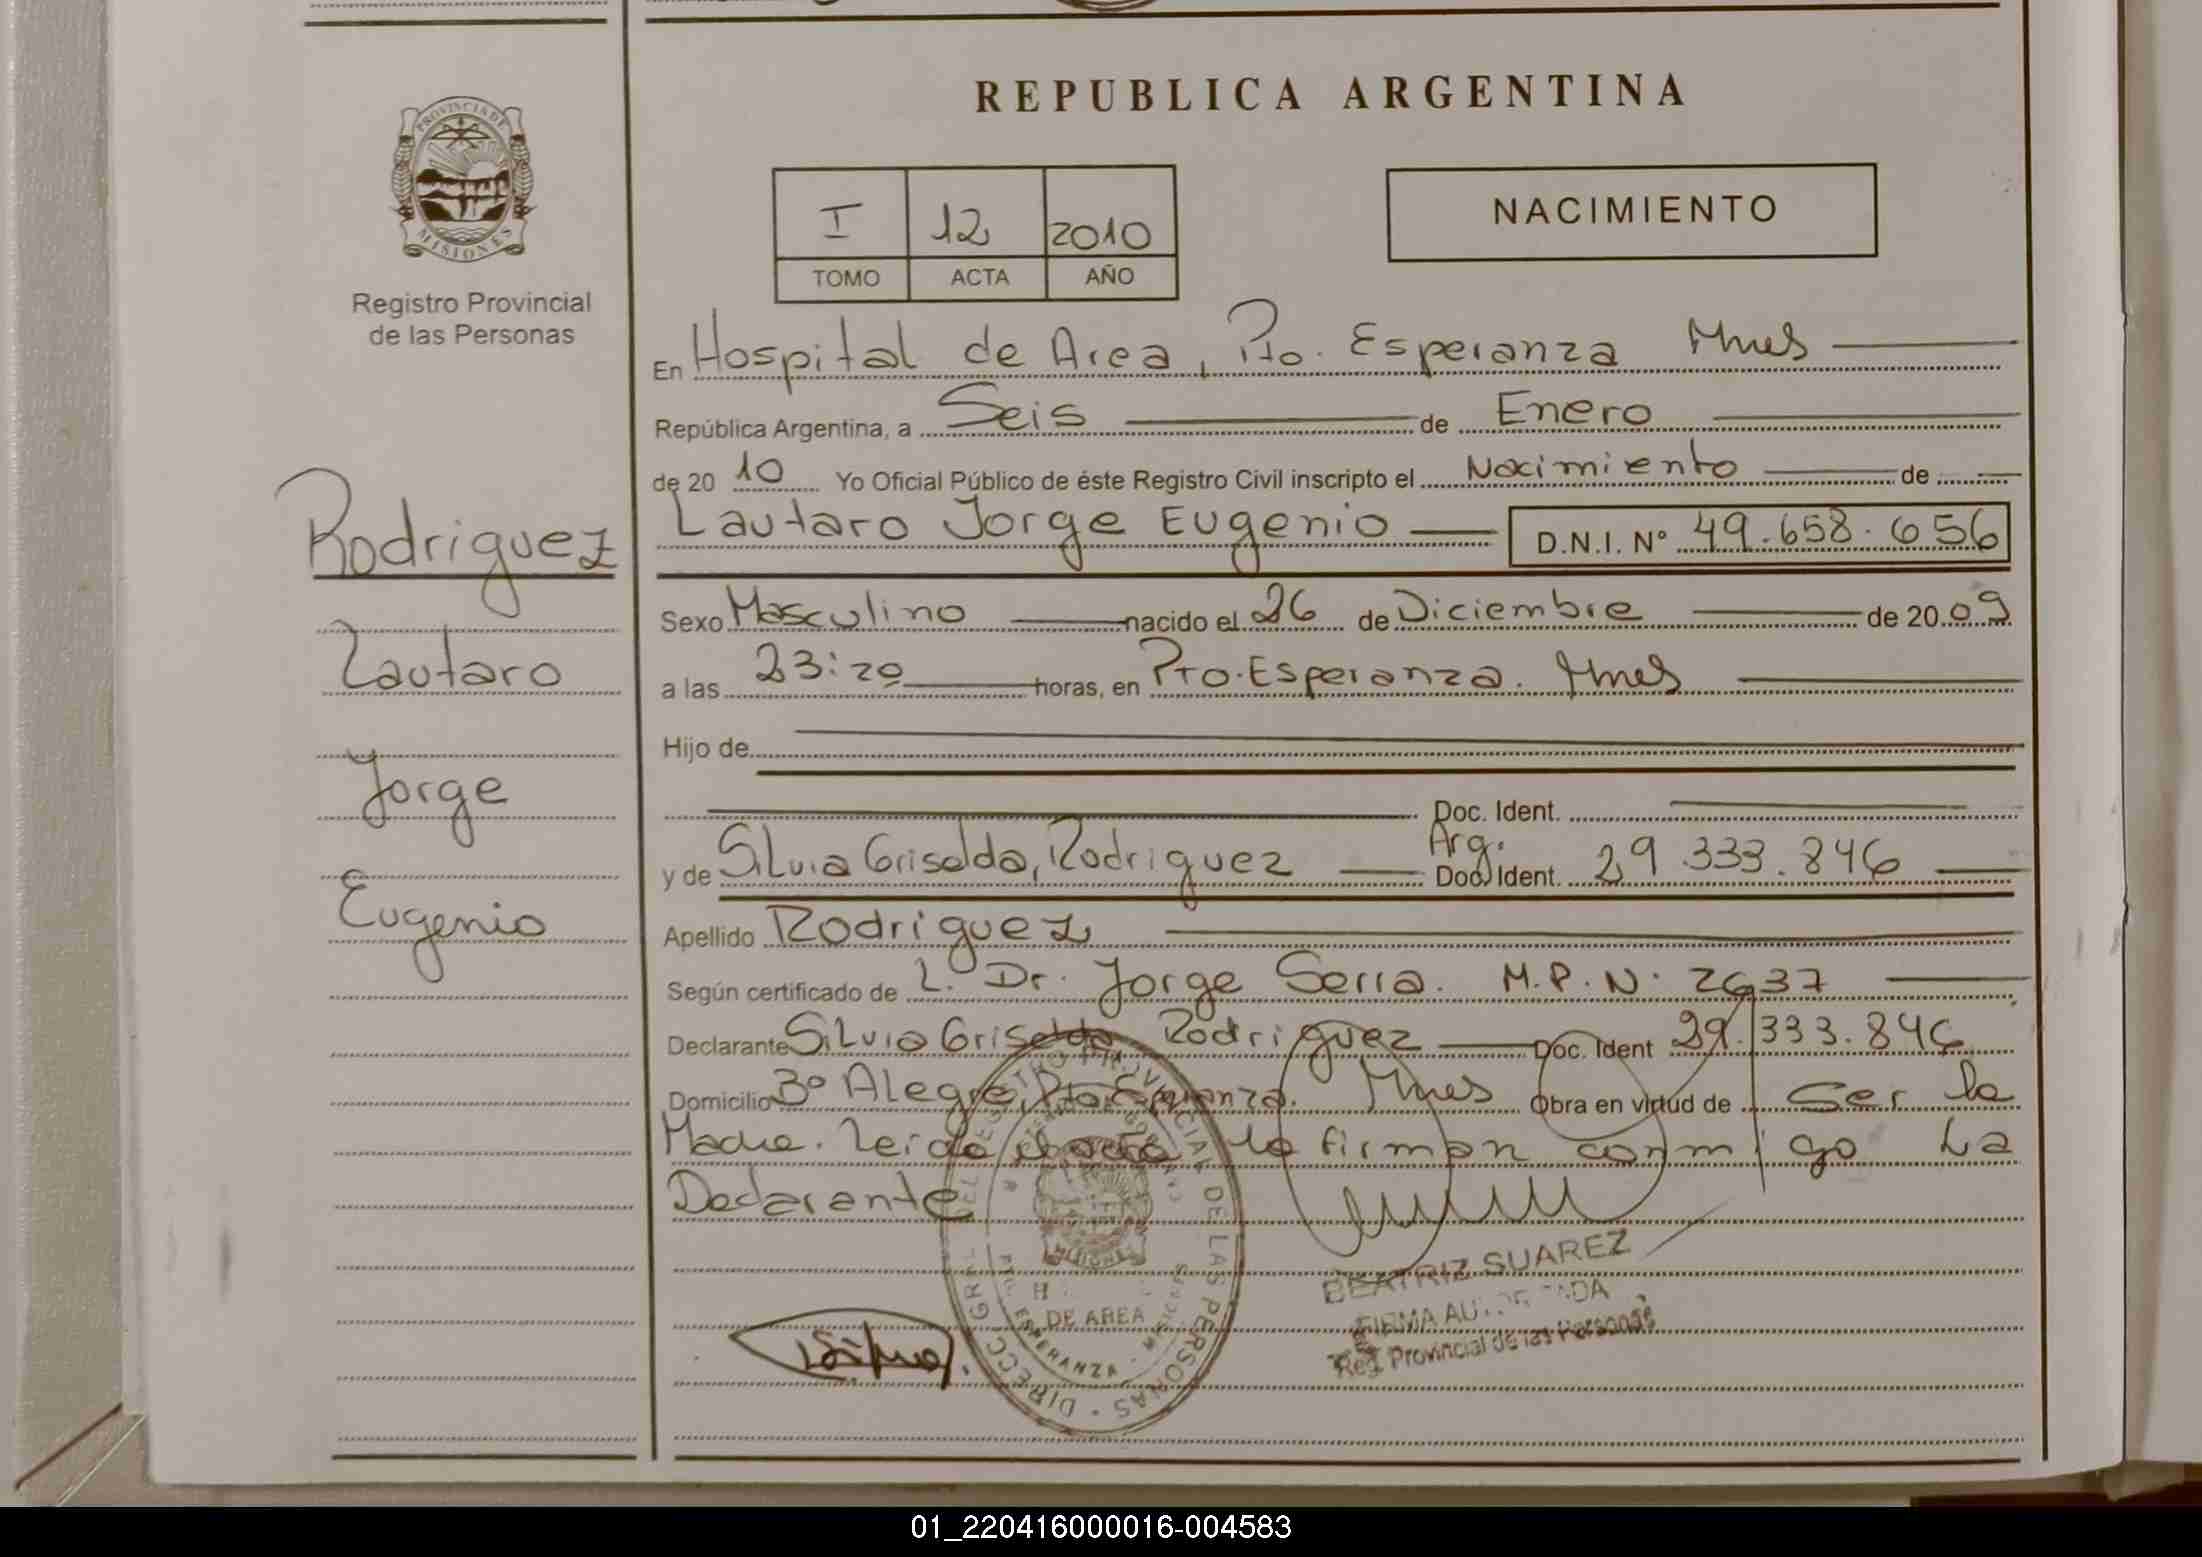 REPUBLICA ARGENTINA
PROVINCIA DE
MISIONES
Registro Provincial
de las Personas
I 12 2010
TOMO ACTA AÑO
NACIMIENTO
En Hospital de Area, Pto. Esperanza Mnes
República Argentina, a Seis de Enero
de 2010 Yo Oficial Público de éste Registro Civil inscripto el Nacimiento de
Lautaro Jorge Eugenio D.N.I. N° 49.658.656
Rodriguez
Lautaro
Jorge
Eugenio
Sexo Masculino nacido el 26 de Diciembre de 2009
a las 23:20 horas, en Pto. Esperanza. Mnes
Hijo de
Doc. Ident.
y de Silvia Griselda, Rodriguez Arg. Doc. Ident. 29.333.846
Apellido Rodriguez
Según certificado de L. Dr. Jorge Serra. M.P.N. 2637
Declarante Silvia Griselda Rodriguez Doc. Ident 29.333.846
Domicilio Bº Alegre, Pto. Esperanza. Mnes Obra en virtud de Ser la
Madre. Leida el acta la firman conmigo La
Declarante
DIRECC GRAL DEL REGISTRO PROVINCIAL DE LAS PERSONAS
DE AREA
ESPERANZA
BEATRIZ SUAREZ
FIRMA
Reg. Provincial de las Personas
01_220416000016-004583